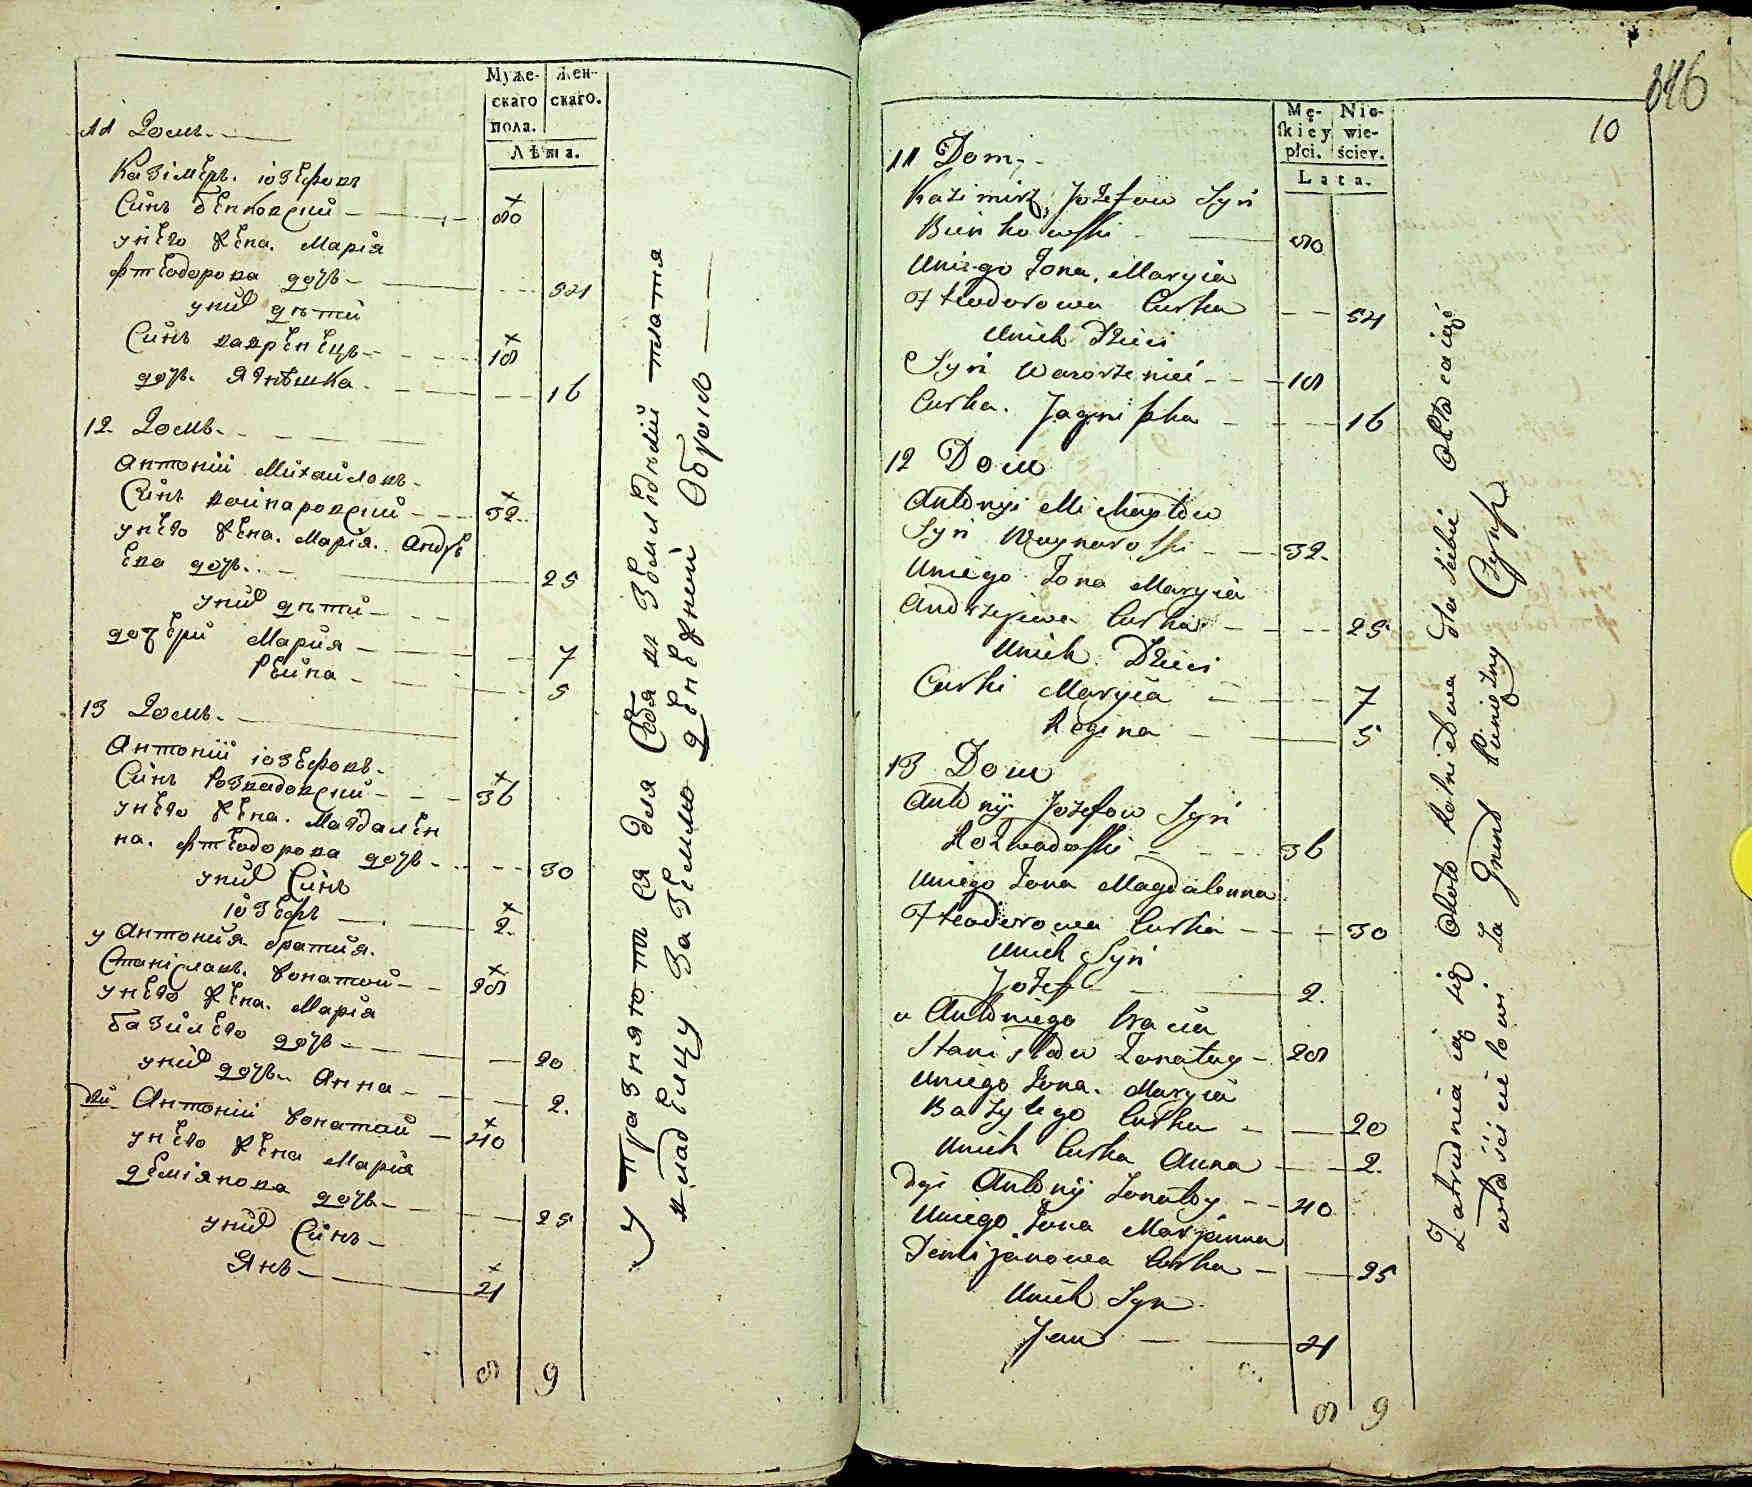 Муже-
скаго
пола.
Жен-
скаго.
Лѣта.
11 Домъ.
Казімеръ. іозефовъ
Синъ бенковский 80
унего жена. Марія
фтеодорова дочь 54
уних дѣти
Синъ вавренецъ 18
дочь. Ягнѣшка. 16
12 Домъ.
Антоній Михайловъ
Синъ войнаровский 32.
унего жена. Марія. Андре
ева дочь. 25
уних дѣти
дочери Мария 7
Реина 5
13 Домъ.
Антоній іозефовъ.
Синъ Розвадовский 36
унего жена. Магдален
на. фтеодорова дочь 30
уних Синъ
іозефъ 2.
у Антония братия.
Станіславъ. Жонатой 28
унего жена. Марія
базилего дочь 20
уних дочь Анна 2.
Антоній Жонатой 40
унего жена Марія
деміянова дочь 25
уних Синъ
Янъ 4
8 9
Упразняются для Себя
владелцу За Землю денежний Оброк
846
10
Mę-
skiey
płci.
Nie-
wie-
ściey.
Lata.
11 Dom
Kazimirz, Jozefow Syn
Bienkowski 80
Uniego Żona. Maryia
Fteodorowa Curka 54
Unich Dzieci
Syn Wawrzeniec 18
Curka. Jagniszka 16
12 Dom
Antonyi Michayłow
Syn Waynaroski 32.
Uniego Żona Maryia
Andrzejwa Curka 25
Unich Dzieci
Curki Maryia 7
Regina 5
13 Dom
Antonij Jozefow Syn
Rozwadoski 36
Uniego Żona Magdalenna
Fteodorowa Curka 30
Unich Syn
Jozef 2.
u Antoniego bracia
Stanisław Żonatuy 28
Uniego Żona. Maryia
Bazylego Curka 20
Unich Curka Anna 2.
dgi Antonij Żonatoy 40
Uniego Żona Maryjanna
Demijanowa Curka 25
Unich Syn
Jan 4
8 9
Zatrudniaią się Około Rolnictwa dla Siebie Opłacaiąc
właścicielowi Za Grunt Pieniężny Czynsz